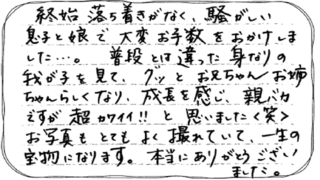 終始 落ち着きがなく、騒がしい
息子と娘で大変お手数をおかけしま
した…。 普段とは違った身なりの
我が子を見て、グッとお兄ちゃんお姉
ちゃんらしくなり、成長を感じ、親バカ
ですが超カワイイ!! と思いました<笑>
お写真もとてもよく撮れていて、一生の
宝物になります。本当にありがとうござい
ました。